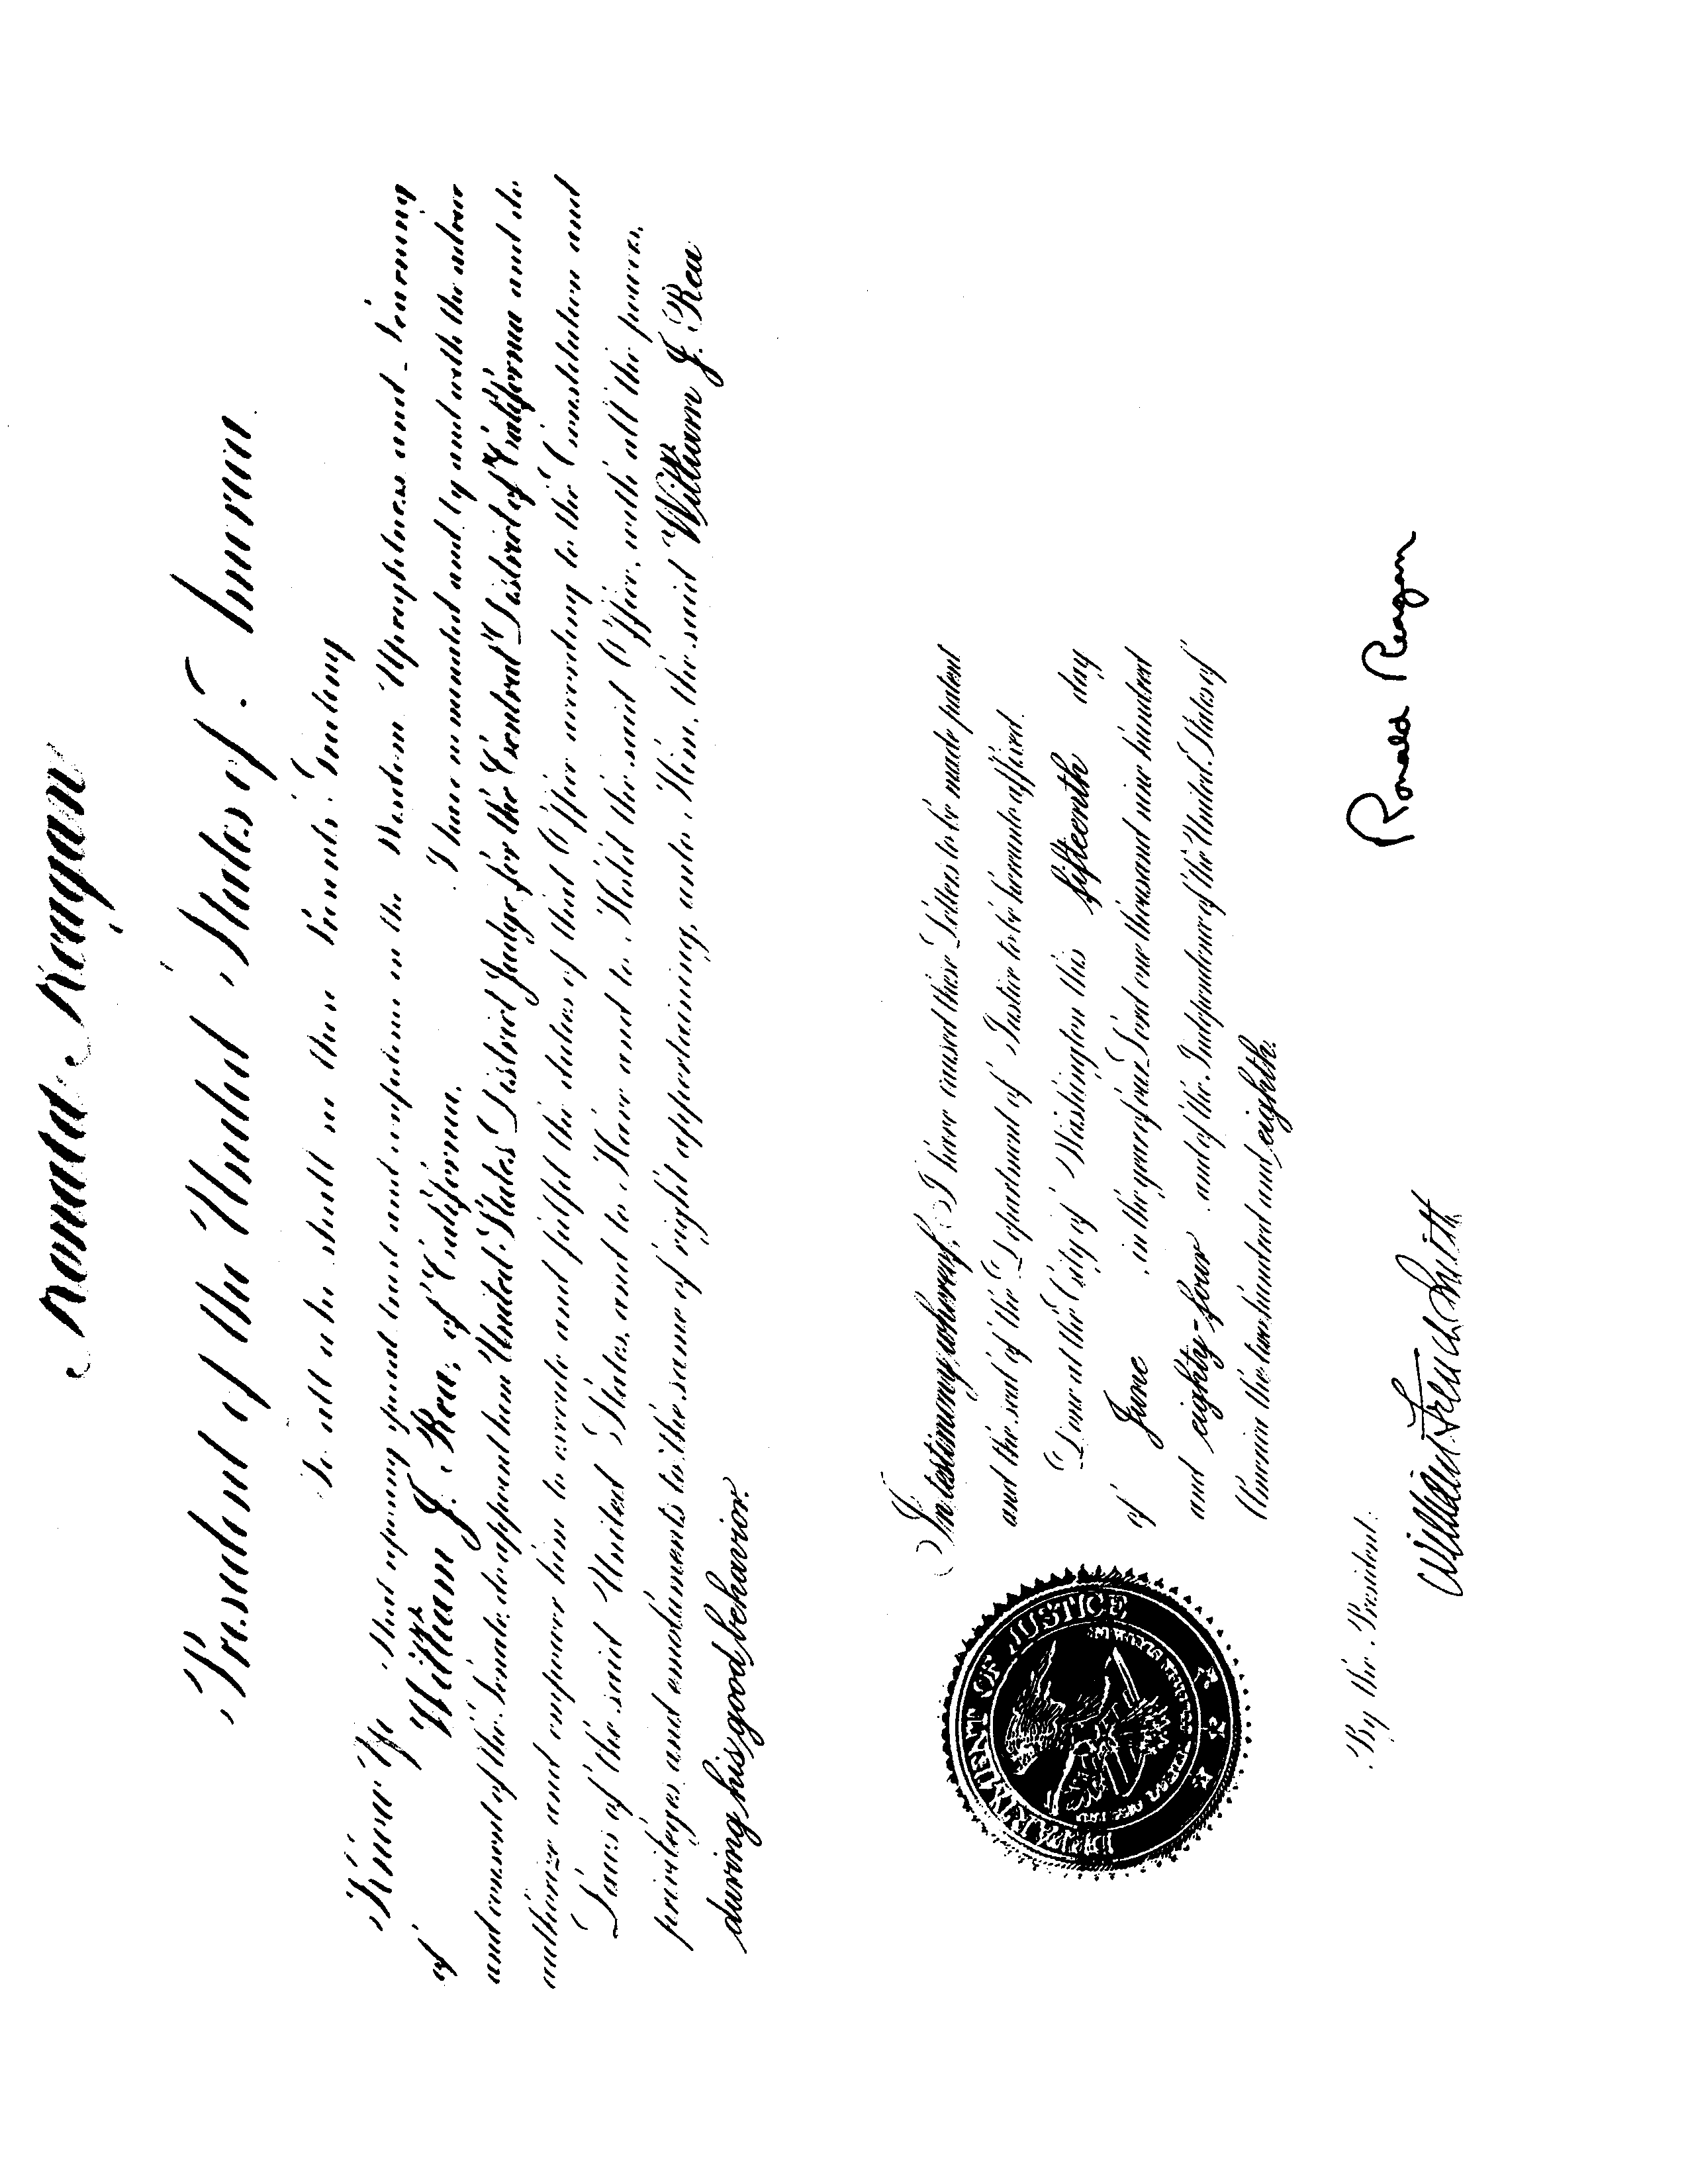 Ronald Reagan
President of the United States of America
To all who shall see these Presents, Greeting
Know Ye That reposing special trust and confidence in the Wisdom Uprightness and Learning
of William J. Rea, of California, I have nominated and by and with the advice
and consent of the Senate do appoint him United States District Judge for the Central District of California and do
authorize and empower him to execute and fulfil the duties of that Office according to the Constitution and
Laws of the said United States, and to Have and to Hold the said Office, with all the powers,
privileges and emoluments to the same of right appertaining, unto Him, the said William J. Rea
during his good behavior.
In testimony whereof, I have caused these Letters to be made patent
and the seal of the Department of Justice to be hereunto affixed.
Done at the City of Washington this fifteenth day
of June, in the year of our Lord one thousand nine hundred
and eighty-four, and of the Independence of the United States of
America the two hundred and eighth.
DEPARTMENT OF JUSTICE
Ronald Reagan
By the President:
William French Smith